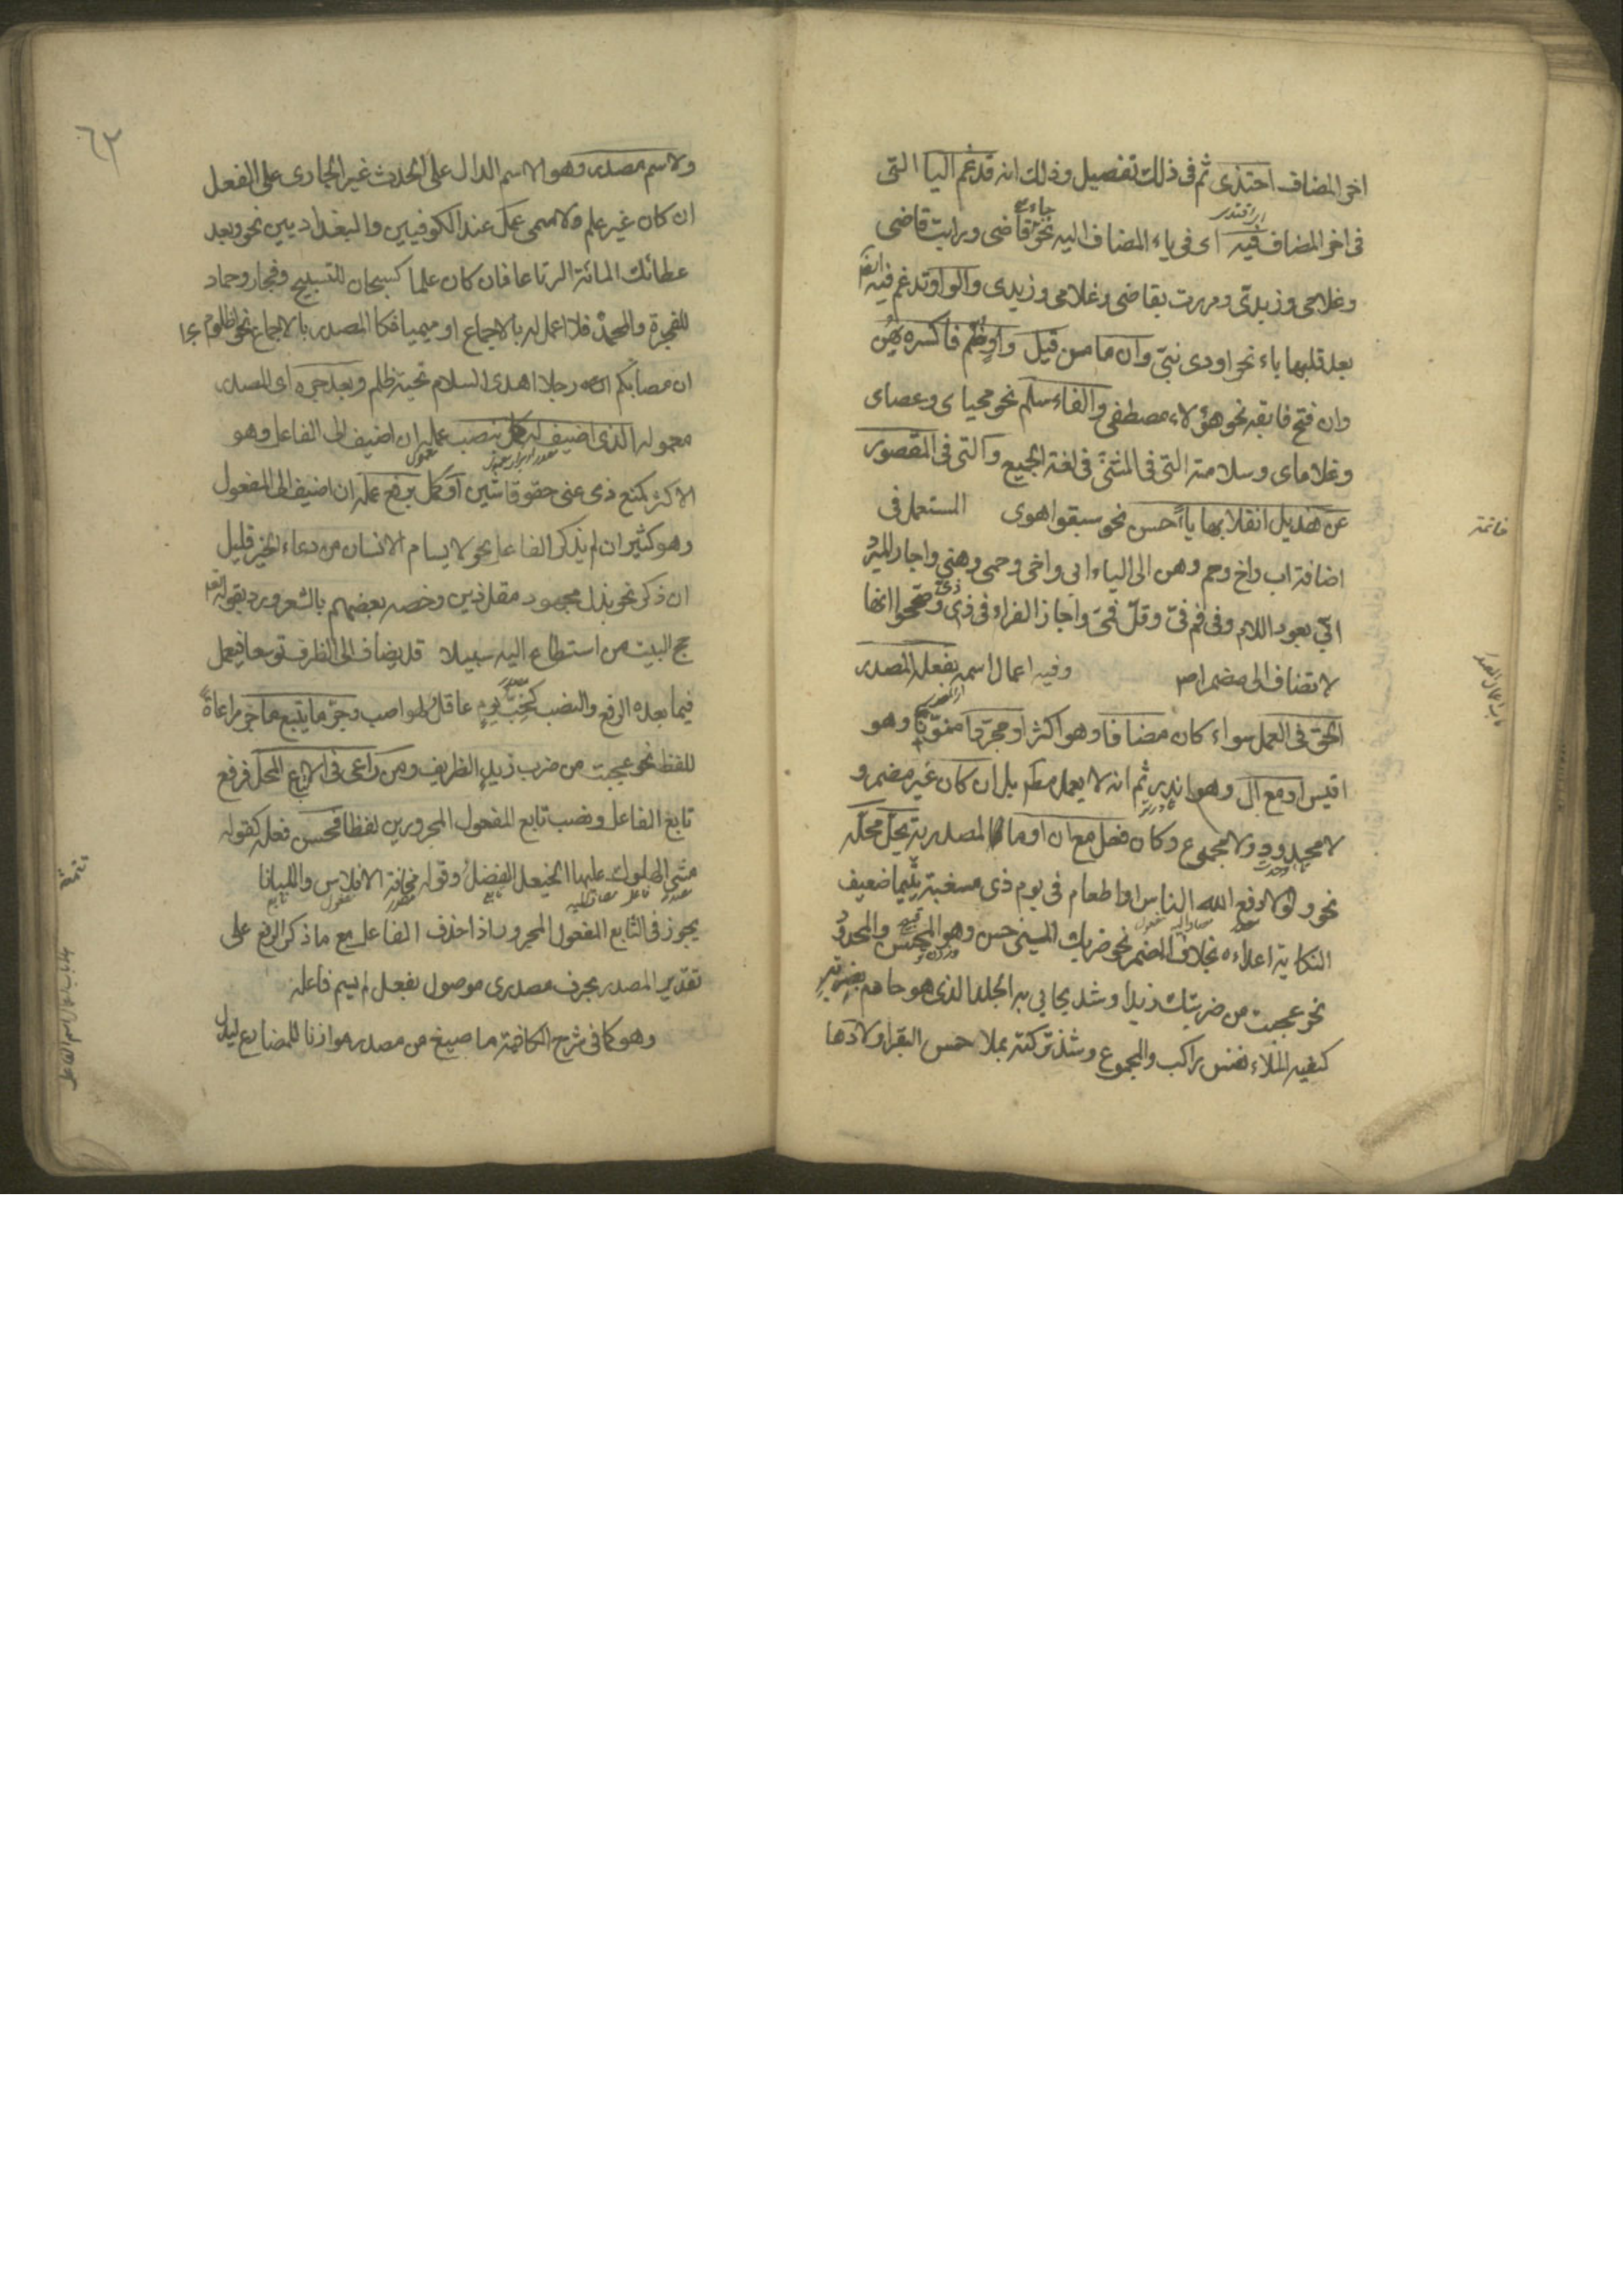 اخر المضاف احتذى ثم فى ذلك تفصيل وذلك انه تدغم اليا التى
فى اخر المضاف فيه اى فى ياء المضاف اليه نحو جاء قاضى ورايت قاضى
وغلامى وزيدى ومررت بقاضى وغلامى وزيدى والواو تدغم فيه
بعد قلبها ياء نحو اودى بنىّ وان ما من قبل واو ضم فاكسره يهن
وان فتح فابقه نحو هؤلاء مصطفى والفاء سلم نحو محياى وعصاى
وغلاماى وسلامته التى فى المثنى فى لغة الجميع والتى فى المقصور
عن هذيل انقلابها ياً حسن نحو سبقوا هوى المستعمل فى
خاتمة
اضافة اب واخ وحم وهن الى الياء ابى واخى وحمى وهنى واجاز المبرد
ابىّ بعود اللام وفى فم فىّ وقل فمى واجاز الفراء فى ذى ذىّ وصححوا انها
لا تضاف الى مضمر اص وفيه اعمال اسمه بفعله المصدر
الحق فى العمل سواء كان مضافا وهو اكثر او مجردا منونا وهو
اقيس او مع ال وهو اندر ثم انه لا يعمل مط بل ان كان غير مضمر و
لا محدود ولا مجموع وكان فعل مع ان او ما المصدرية يحل محله
نحو ولولا دفع الله الناس او اطعام فى يوم ذى مسغبة يتيما ضعيف
النكاية اعداءه بخلاف المضمر نحو ضربك المسئ حسن وهو المحسن والمحدود
نحو عجبت من ضربتك زيدا وشد يحايى به الجلد الذى هو حازم بضربة
كفيه الملاء نفس راكب والمجموع وشذ تركته بملاحس البقر اولادها
٦٢
ولاسم مصدر وهو الاسم الدال على الحدث غير الجارى على الفعل
ان كان غير علم ولا ميمى عمل عند الكوفيين والبغداديين نحو وبعد
عطائك المائة الرتاعا فان كان علما كسبحان للتسبيح وفجار وحماد
للفجرة والمحمدة فلا اعمل له بالاجماع او ميميا فكالمصدر بالاجماع نحو اظلوم
ان مصابكم رجلا اهدى السلام تحية ظلم وبعد جره اى المصدر
معموله الذى اضيف له كمل بنصب عمله ان اضيف الى الفاعل وهو
الاكثر كمنع ذى غنى حقوقا شين او كمل برفع عمله ان اضيف الى المفعول
وهو كثير ان لم يذكر الفاعل نحو لا يسام الانسان من دعاء الخير قليل
ان ذكر نحو بذل مجهود مقل زين وخصه بعضهم بالشعر ورد بقوله تعا
حج البيت من استطاع اليه سبيلا قد يضاف الى الظرف توسعا فيعمل
فيما بعده الرفع والنصب كحب يوم عاقل لهوا صب وجر ما يتبع ما جر مراعاة
للفظ نحو عجبت من ضرب زيد الظريف ومن راعى فى الاتباع المحل فرفع
تابع الفاعل ونصب تابع المفعول المجرورين لفظا فحسن فعله كقوله
مشى الهلوك عليها الخيعل الفضل وقوله مخافة الافلاس والليانا
يجوز فى التابع المفعول المجرور اذا حذف الفاعل مع ما ذكر الرفع على
تقدير المصدر بحرف مصدرى موصول بفعل لم يسم فاعله
وهو كما فى شرح الكافية ما صيغ من مصدر موازنا للمضارع ليدل